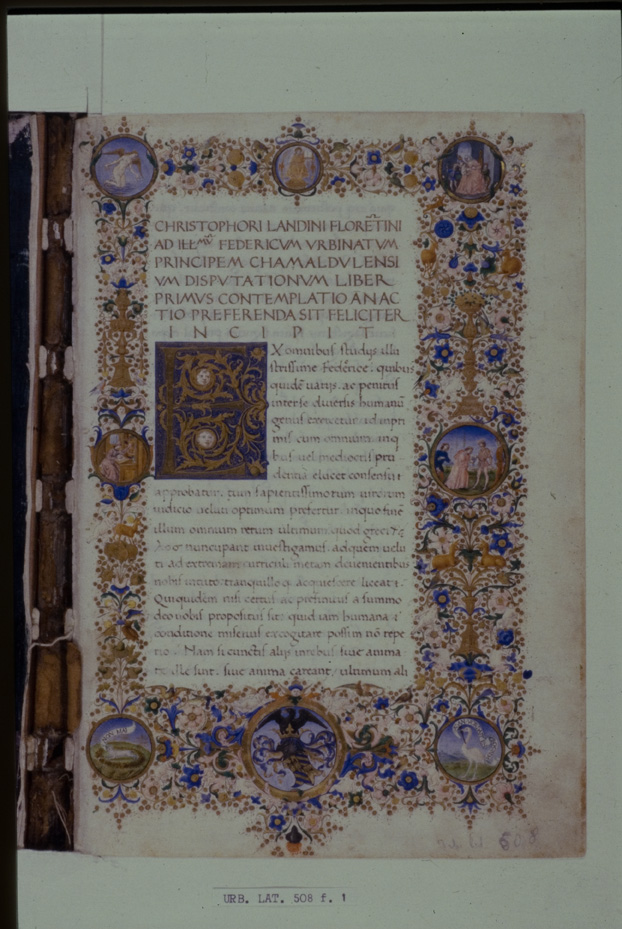 CHRISTOPHORI LANDINI FLORĒTINI
AD ILLᴹᵛᴹ FEDERICVM VRBINATVM
PRINCIPEM CHAMALDVLENSI
VM DISPVTATIONVM LIBER
PRIMVS CONTEMPLATIO AN AC
TIO PREFERENDA SIT FELICITER
INCIPIT
EX omnibus studijs illu
strissime Federice: quibus
quidē uarijs: ac penitus
inter se diuersis humanū
genus exercetur: id in pri
mis cum omnium: in q
bus uel mediocris pru
dentia elucet consensu:
approbatur: tum sapientissimorum uirorum
iudicio ueluti optimum prefertur: in quo finē
illum omnium rerum ultimum: quod greci
nuncupant inuestigamus: ad quem uelu
ti ad extremam curriculi metam deuenientibus
nobis in toto tranquillo q, acquiescere liceat:
Qui quidem nisi certus ac prefinitus a summo
deo nobis propositus sit: quid iam humana
conditione miserius excogitari possim nō repe
rio. Nam si cunctis alijs in rebus siue anima
ille sint: siue anima careant: ultimum ali
URB. LAT. 508 f. 1